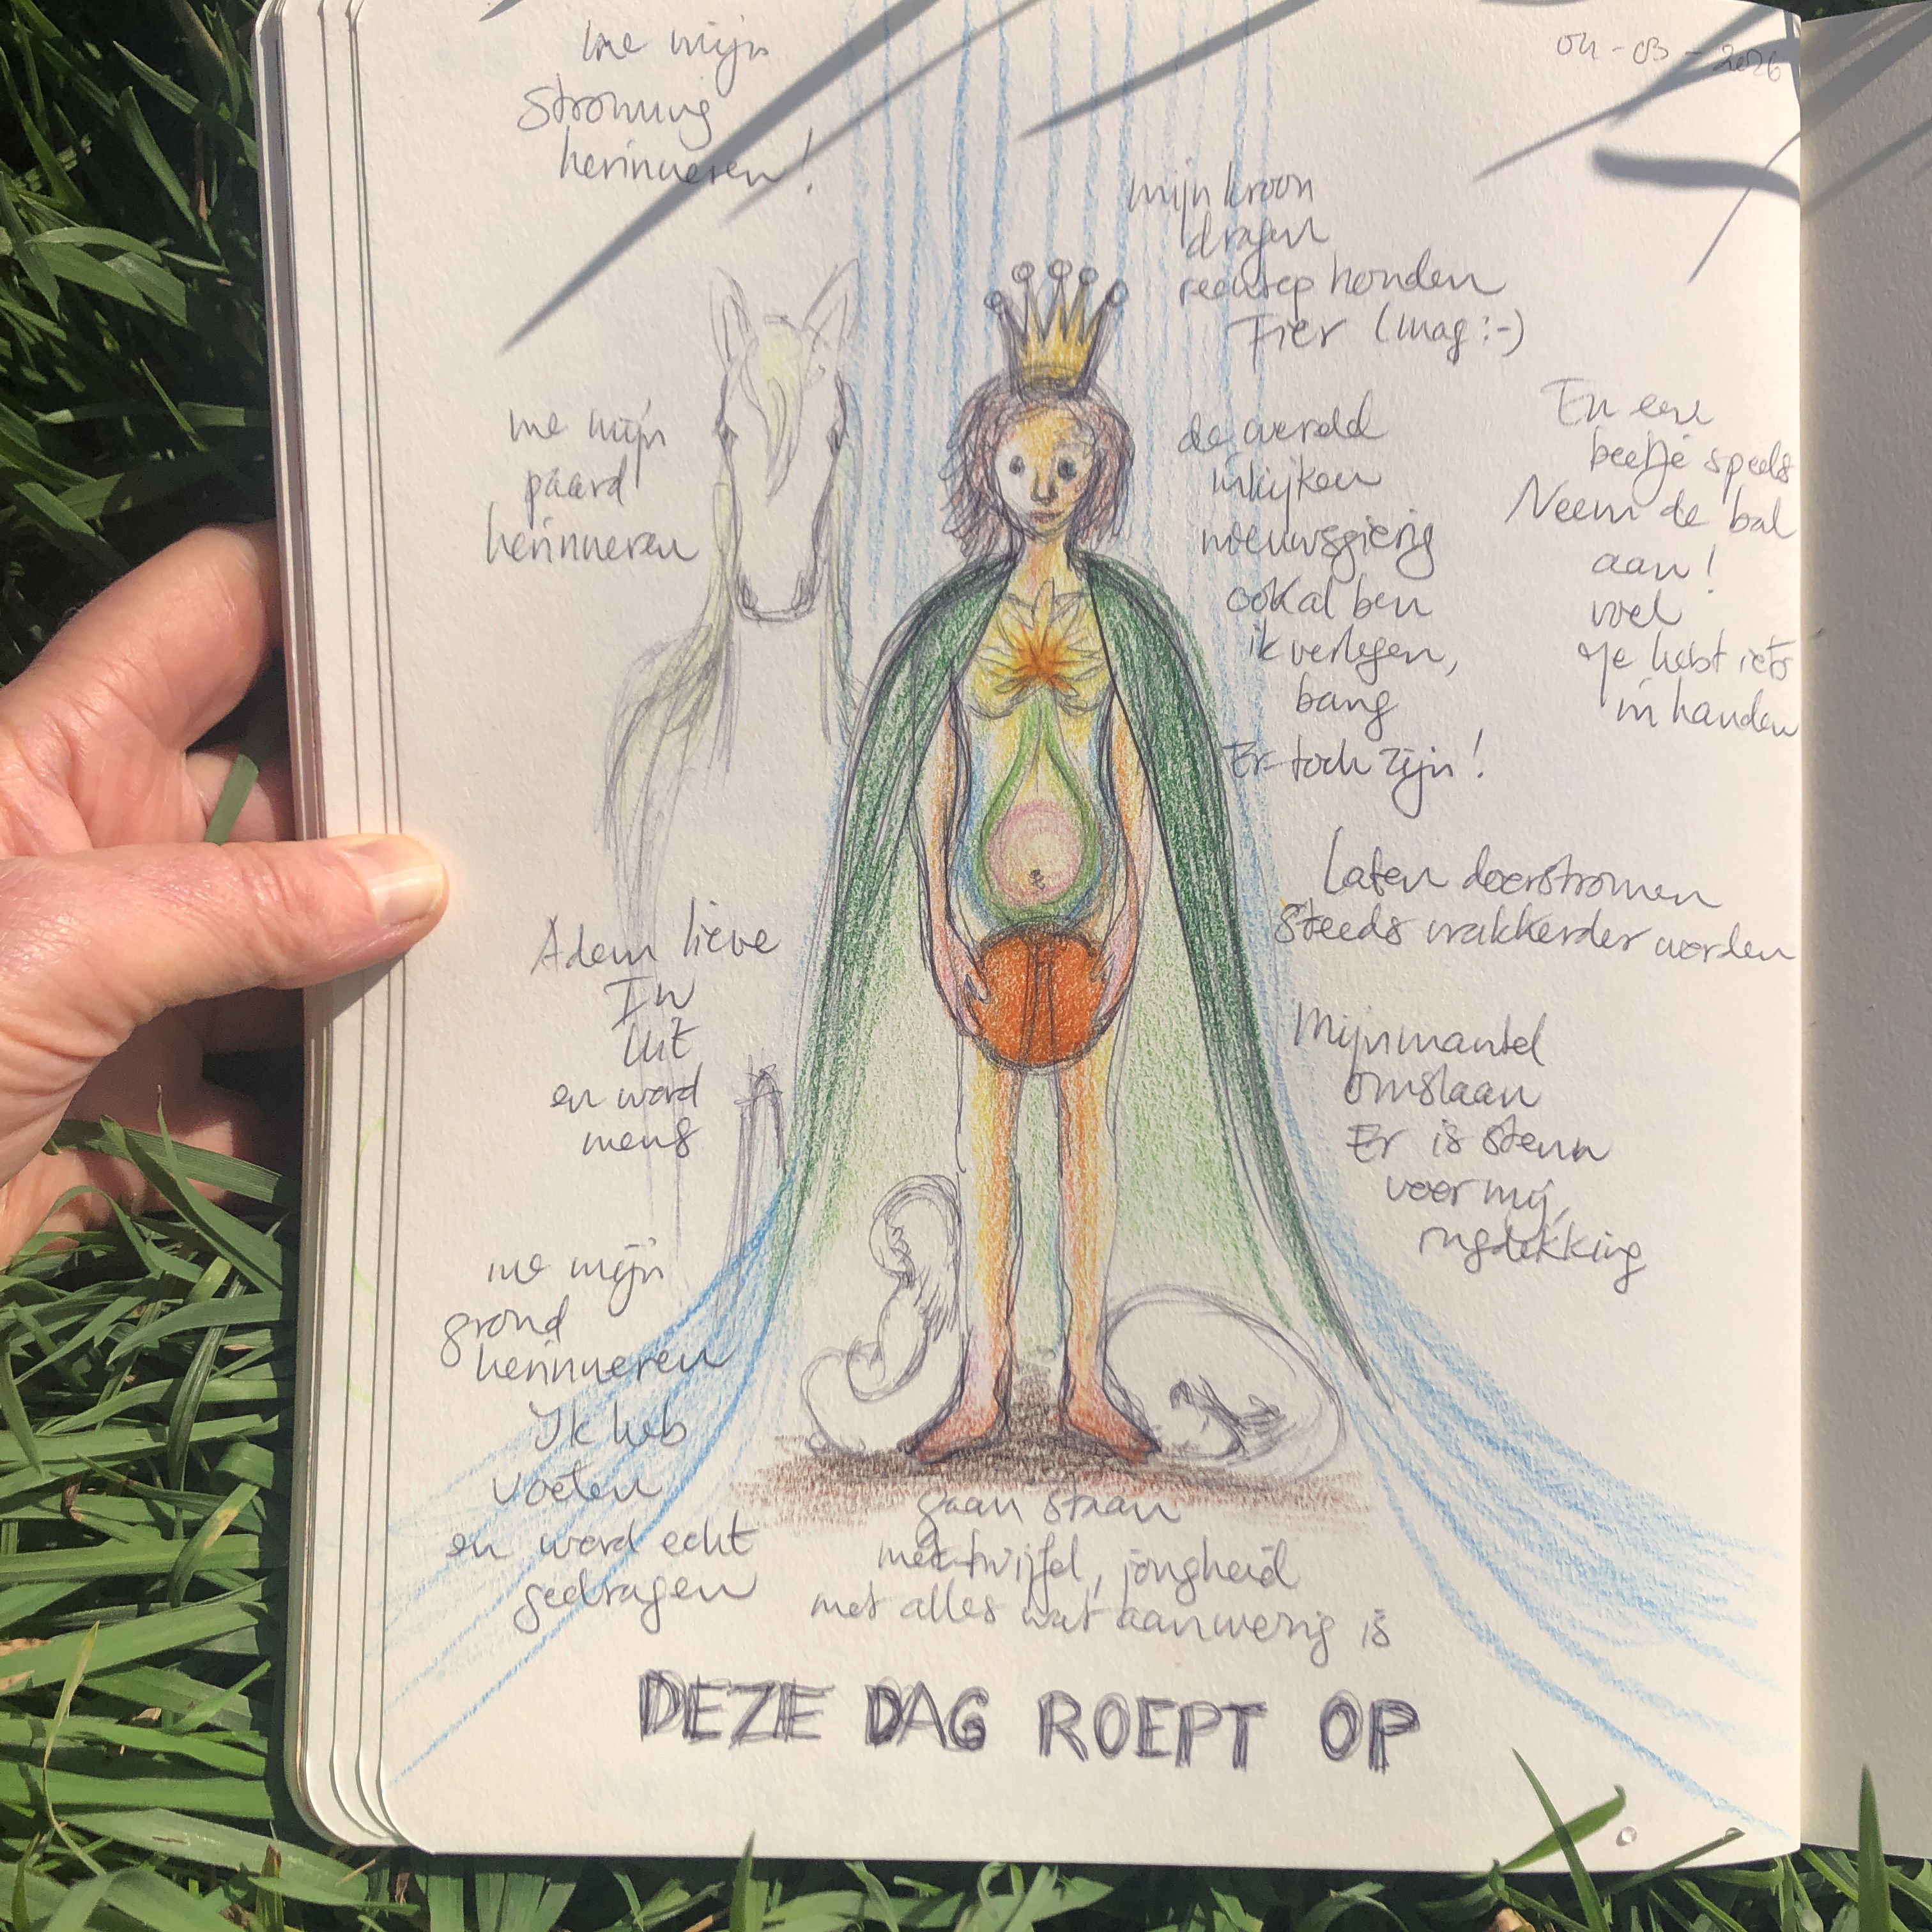 04-03-2026
me mijn
stroming
herinneren!
mijn kroon
dragen
rechtop houden
Fier (mag :-)
me mijn
paard
herinneren
de wereld
inkijken
nieuwsgierig
ook al ben
ik verlegen,
bang
Er toch zijn!
En een
beetje speels
Neem de bal
aan!
voel
Je hebt iets
in handen
Laten doorstromen
steeds wakkerder worden
Adem lieve
In
Uit
en word
mens
Mijn mantel
omslaan
Er is steun
voor mij,
rugdekking
me mijn
grond
herinneren
Ik heb
voeten
en word echt
gedragen
gaan staan
met twijfel, jongheid
met alles wat aanwezig is
DEZE DAG ROEPT OP